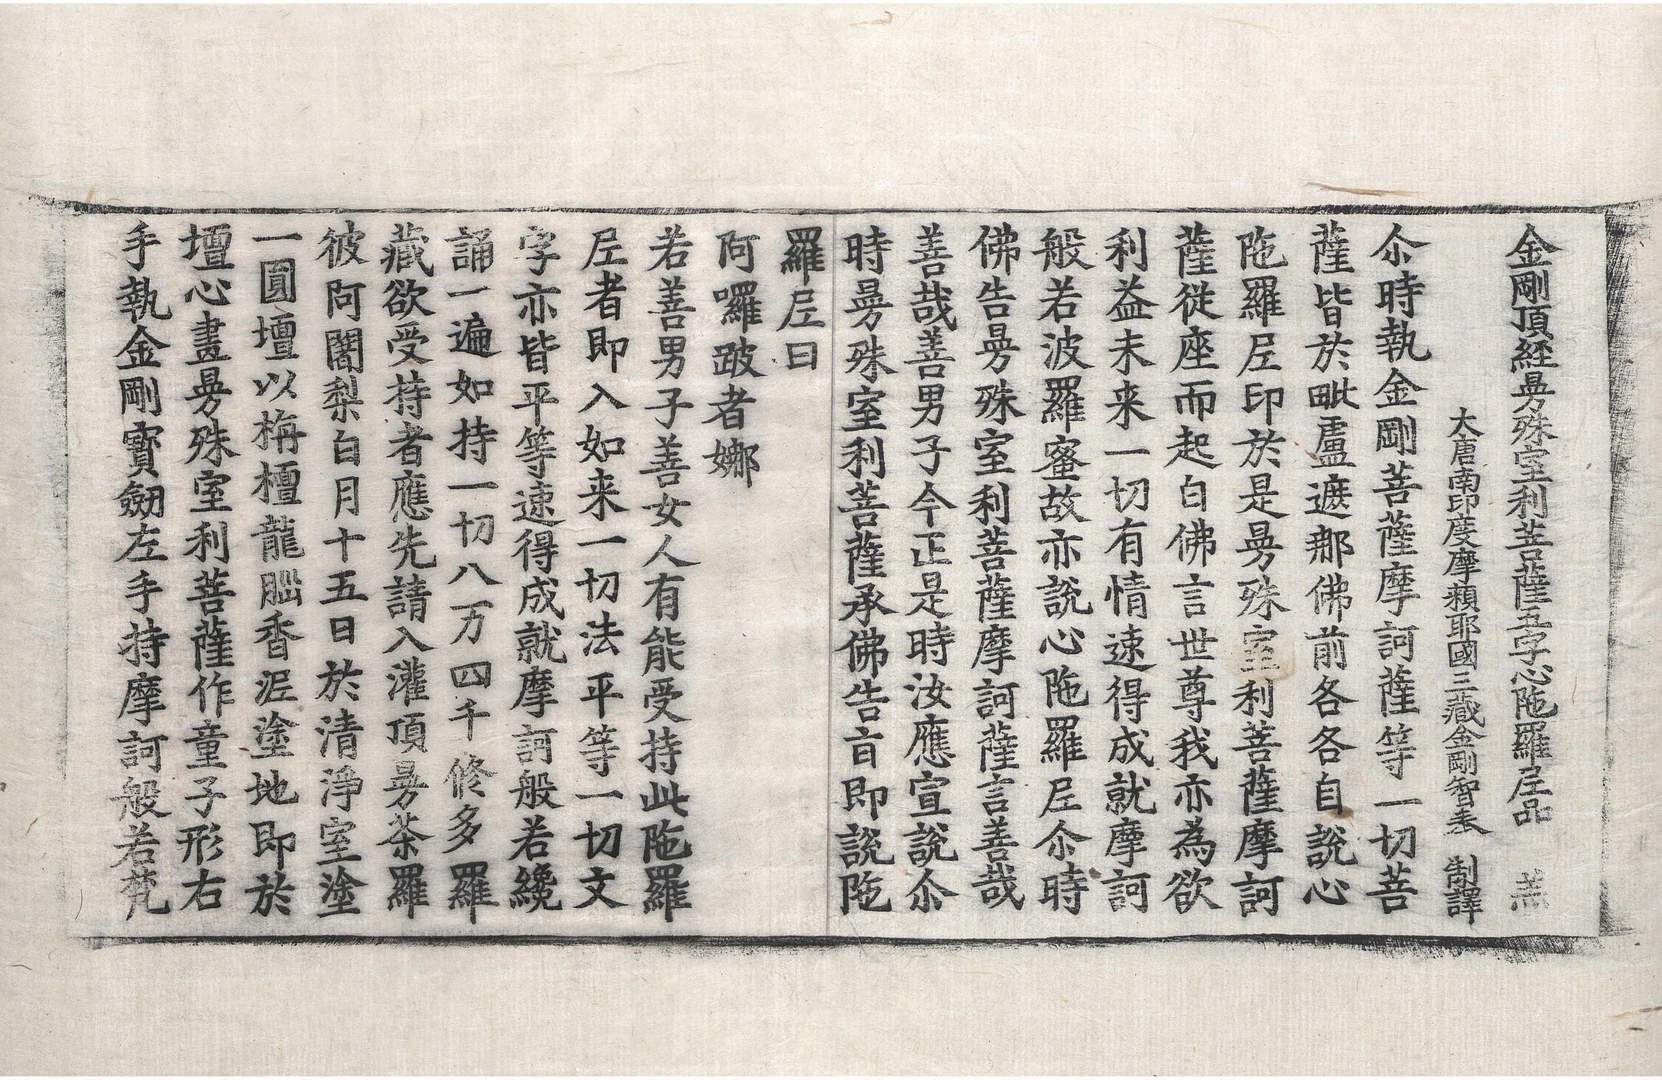 金剛頂經曼殊室利菩薩五字心陁羅尼品 羔
大唐南印度摩賴耶國三藏金剛智奉 制譯
尒時執金剛菩薩摩訶薩等一切菩
薩皆於毗盧遮那佛前各各自說心
陁羅尼印於是曼殊室利菩薩摩訶
薩從座而起白佛言世尊我亦為欲
利益未来一切有情速得成就摩訶
般若波羅蜜故亦說心陁羅尼尒時
佛告曼殊室利菩薩摩訶薩言善哉
善哉善男子今正是時汝應宣說尒
時曼殊室利菩薩承佛告言即說陁
羅尼曰
阿囉跛者娜
若善男子善女人有能受持此陁羅
尼者即入如来一切法平等一切文
字亦皆平等速得成就摩訶般若纔
誦一遍如持一切八万四千修多羅
藏欲受持者應先請入灌頂曼茶羅
彼阿闍梨白月十五日於清淨室塗
一圓壇以栴檀龍腦香泥塗地即於
壇心畫曼殊室利菩薩作童子形右
手執金剛寶劒左手持摩訶般若梵